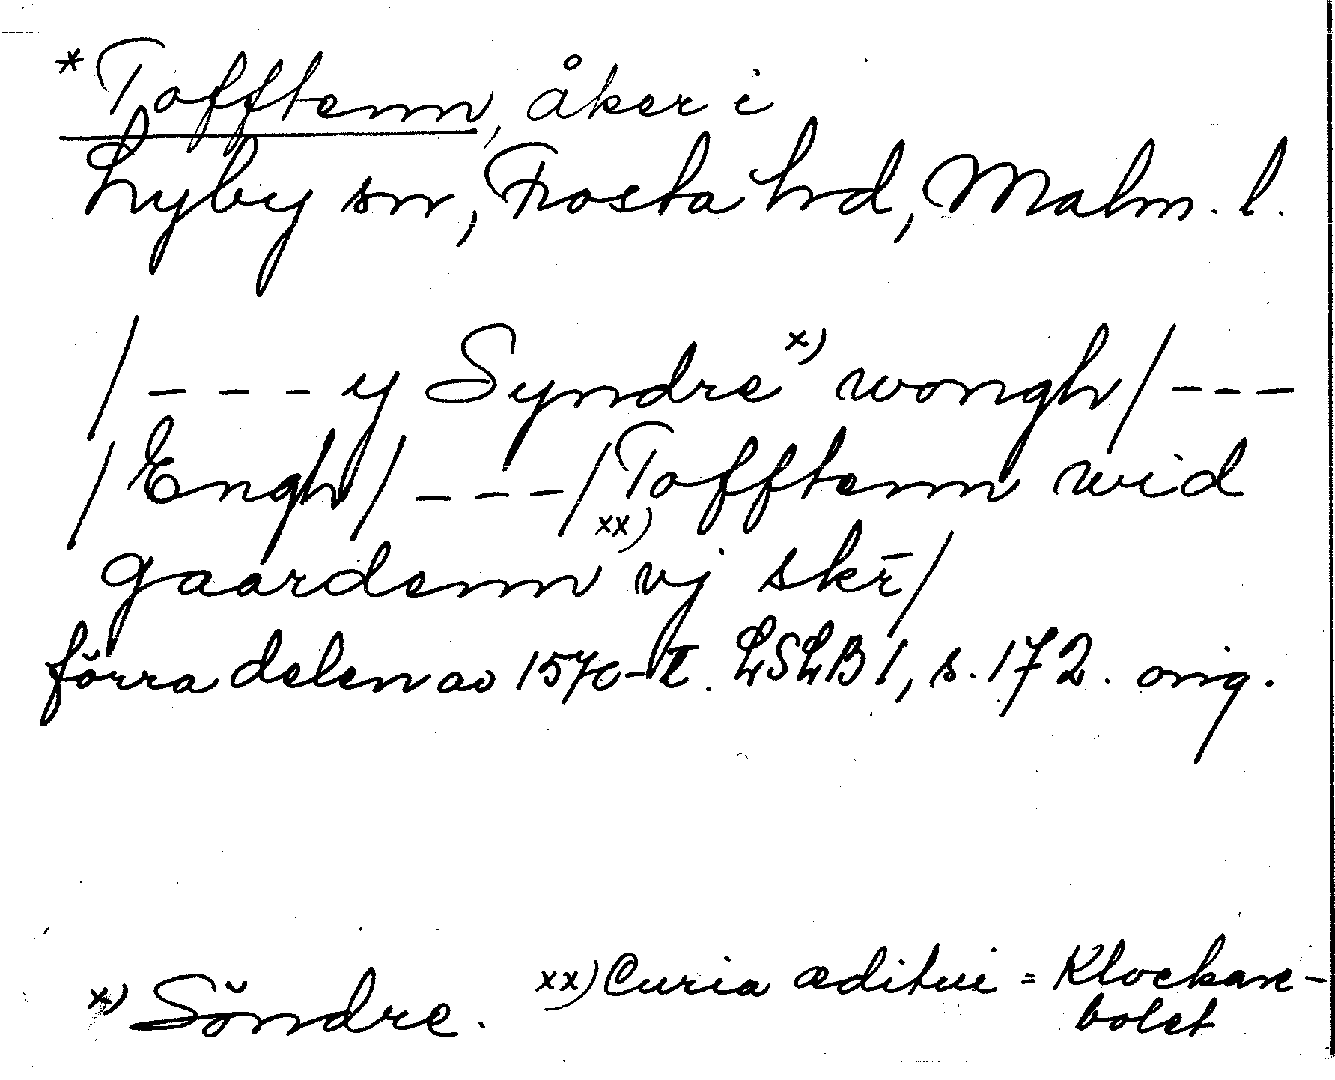 *Tofftenn, åker i
Lyby sn, Frosta hd, Malm. l.
/---y Syndre x) wongh/---
/Engh/---/Tofftenn wid
gaardenn xx) vj skr̄/
förra delen av 1570-t. LSLB 1, s. 172. orig.
x) Söndre. xx) Curia æditui = Klockare-
bolet